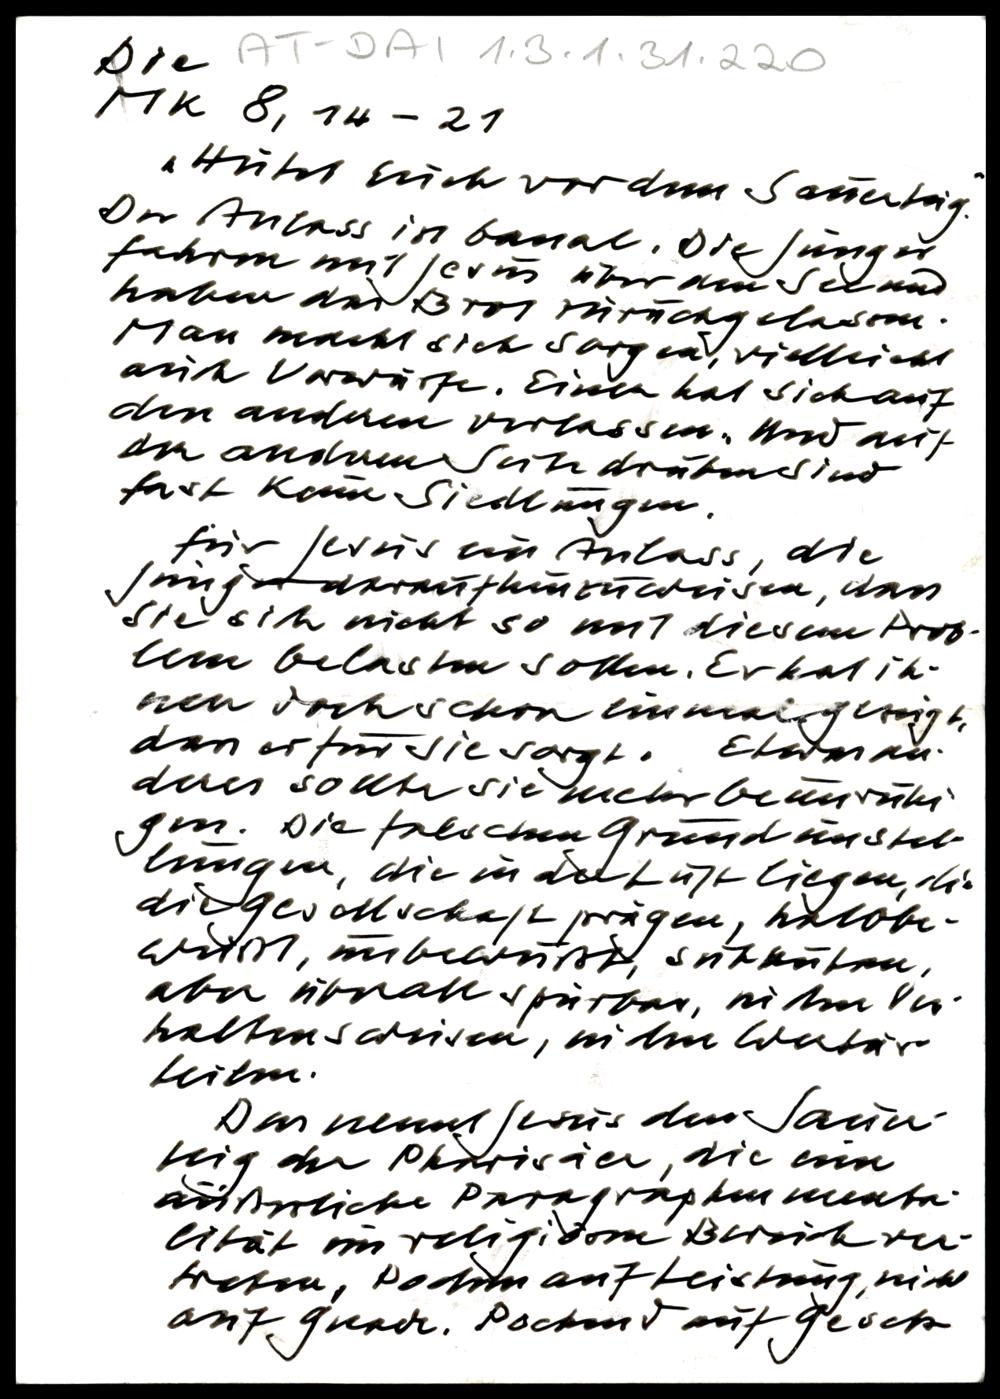 Die AT-DAI 1.3.1.31.220
MK 8, 14 – 21
"Hütet Euch vor dem Sauerteig."
Der Anlass ist banal. Die Jünger
fahren mit Jesus über den See und
haben das Brot zurückgelassen.
Man macht sich Sorgen, vielleicht
auch Vorwürfe. Einer hat sich auf
den anderen verlassen. Und auf
der anderen Seite drüben sind
fast keine Siedlungen.
Für Jesus ein Anlass, die
Jünger daraufhinzuweisen, dass
sie sich nicht so mit diesem Prob-
lem belasten sollen. Er hat ih-
nen doch schon einmal gezeigt,
dass er für sie sorgt. Etwas an-
deres sollte sie mehr beunruhi
gen. Die falschen Grundeinstel-
lungen, die in der Luft liegen, die
die Gesellschaft prägen, halbbe-
wußt, unbewußt, mitunter,
aber überall spürbar, in den Ver-
haltensweisen, in den Wertur-
teilen.
Das nennt Jesus den Sauer-
teig der Pharisäer, die eine
äußerliche Paragraphenmenta-
lität im religiösen Bereich ver-
treten, Pochen auf Leistung, nicht
auf Gnade. Pochend auf Gesetz